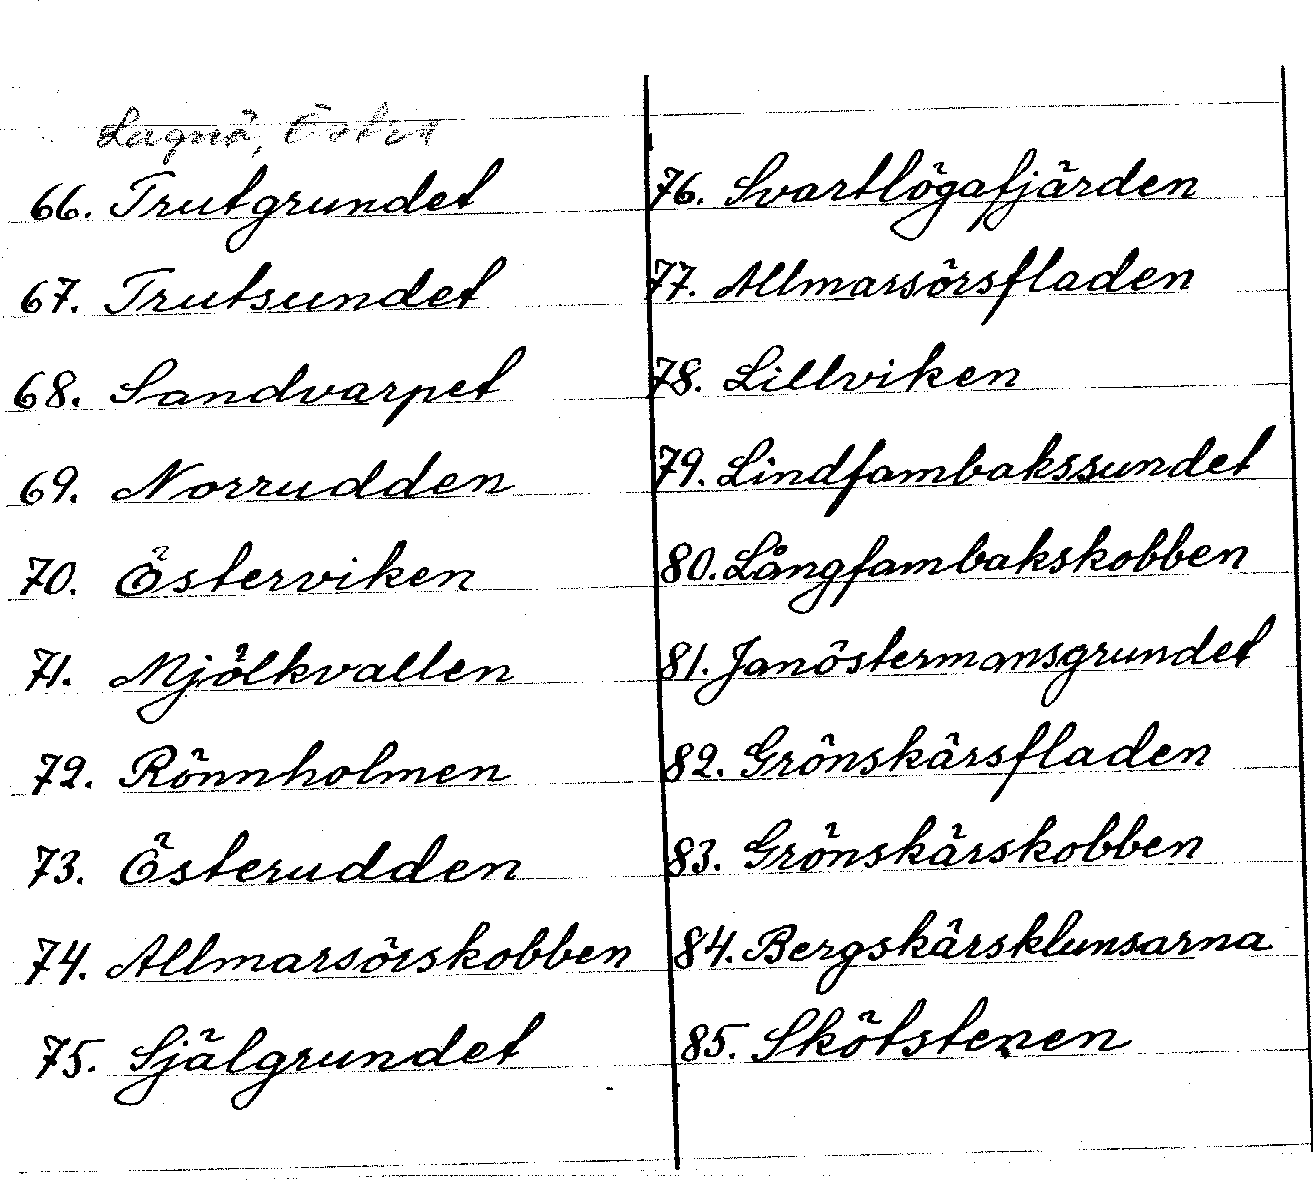 Lagnö, Östra
66. Trutgrundet
67. Trutsundet
68. Sandvarpet
69. Norrudden
70. Österviken
71. Mjölkvallen
72. Rönnholmen
73. Österudden
74. Allmarsörskobben
75. Själgrundet
76. Svartlögafjärden
77. Allmarsörsfladen
78. Lillviken
79. Lindfambakssundet
80. Långfambakskobben
81. Janöstermansgrundet
82. Grönskärsfladen
83. Grönskärskobben
84. Bergskärsklunsarna
85. Skötstenen